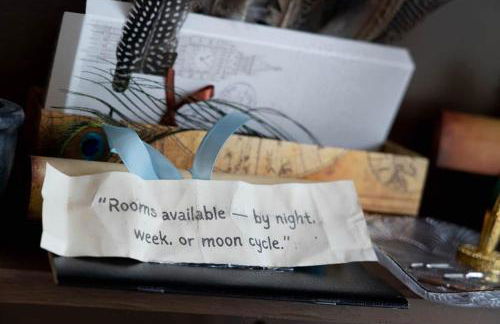 “Rooms available — by night.
week. or moon cycle.”